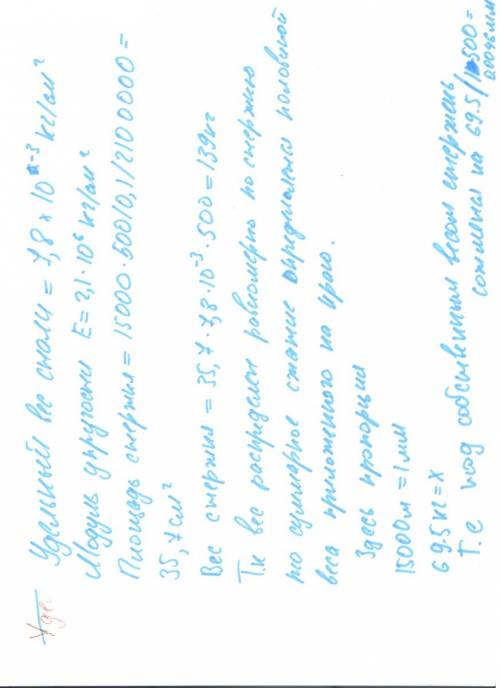 Удельный вес стали = 7,8 × 10⁻³ кг/см²
Модуль упругости E = 2,1·10⁶ кг/см²
Площадь стержня = 15000·500/0,1/2100000 =
35,7 см²
Вес стержня = 35,7·7,8·10⁻³·500 = 139 кг
Т.к вес распределен равномерно по стержню
то суммарное сжатие определяем половиной
веса приложенного на краю.
Здесь пропорция
15000 = 1 мм
69.5 кг = x
Т.е под собственным весом стержень
сожмется на 69.5/15000 =